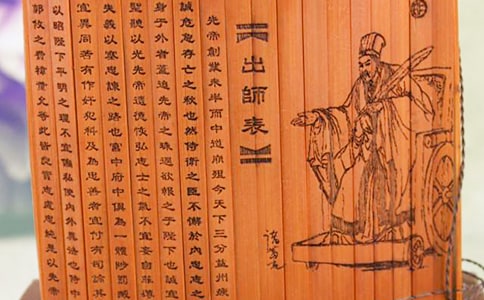 出師表
先帝創業未半而中道崩殂今天下三分益州疲
誠危急存亡之秋也然侍衛之臣不懈於內忠志之
身于外者蓋追先帝之殊遇欲報之于陛下也誠宜
聖聽以光先帝遺德恢弘志士之氣不宜妄自菲薄
失義以塞忠諫之路也宮中府中俱為一體陟罰臧
宜異同若有作奸犯科及為忠善者宜付有司論其
以昭陛下平明之理不宜偏私使內外異法也侍中
郭攸之費禕董允等此皆良實志慮忠純是以先帝
諸葛亮